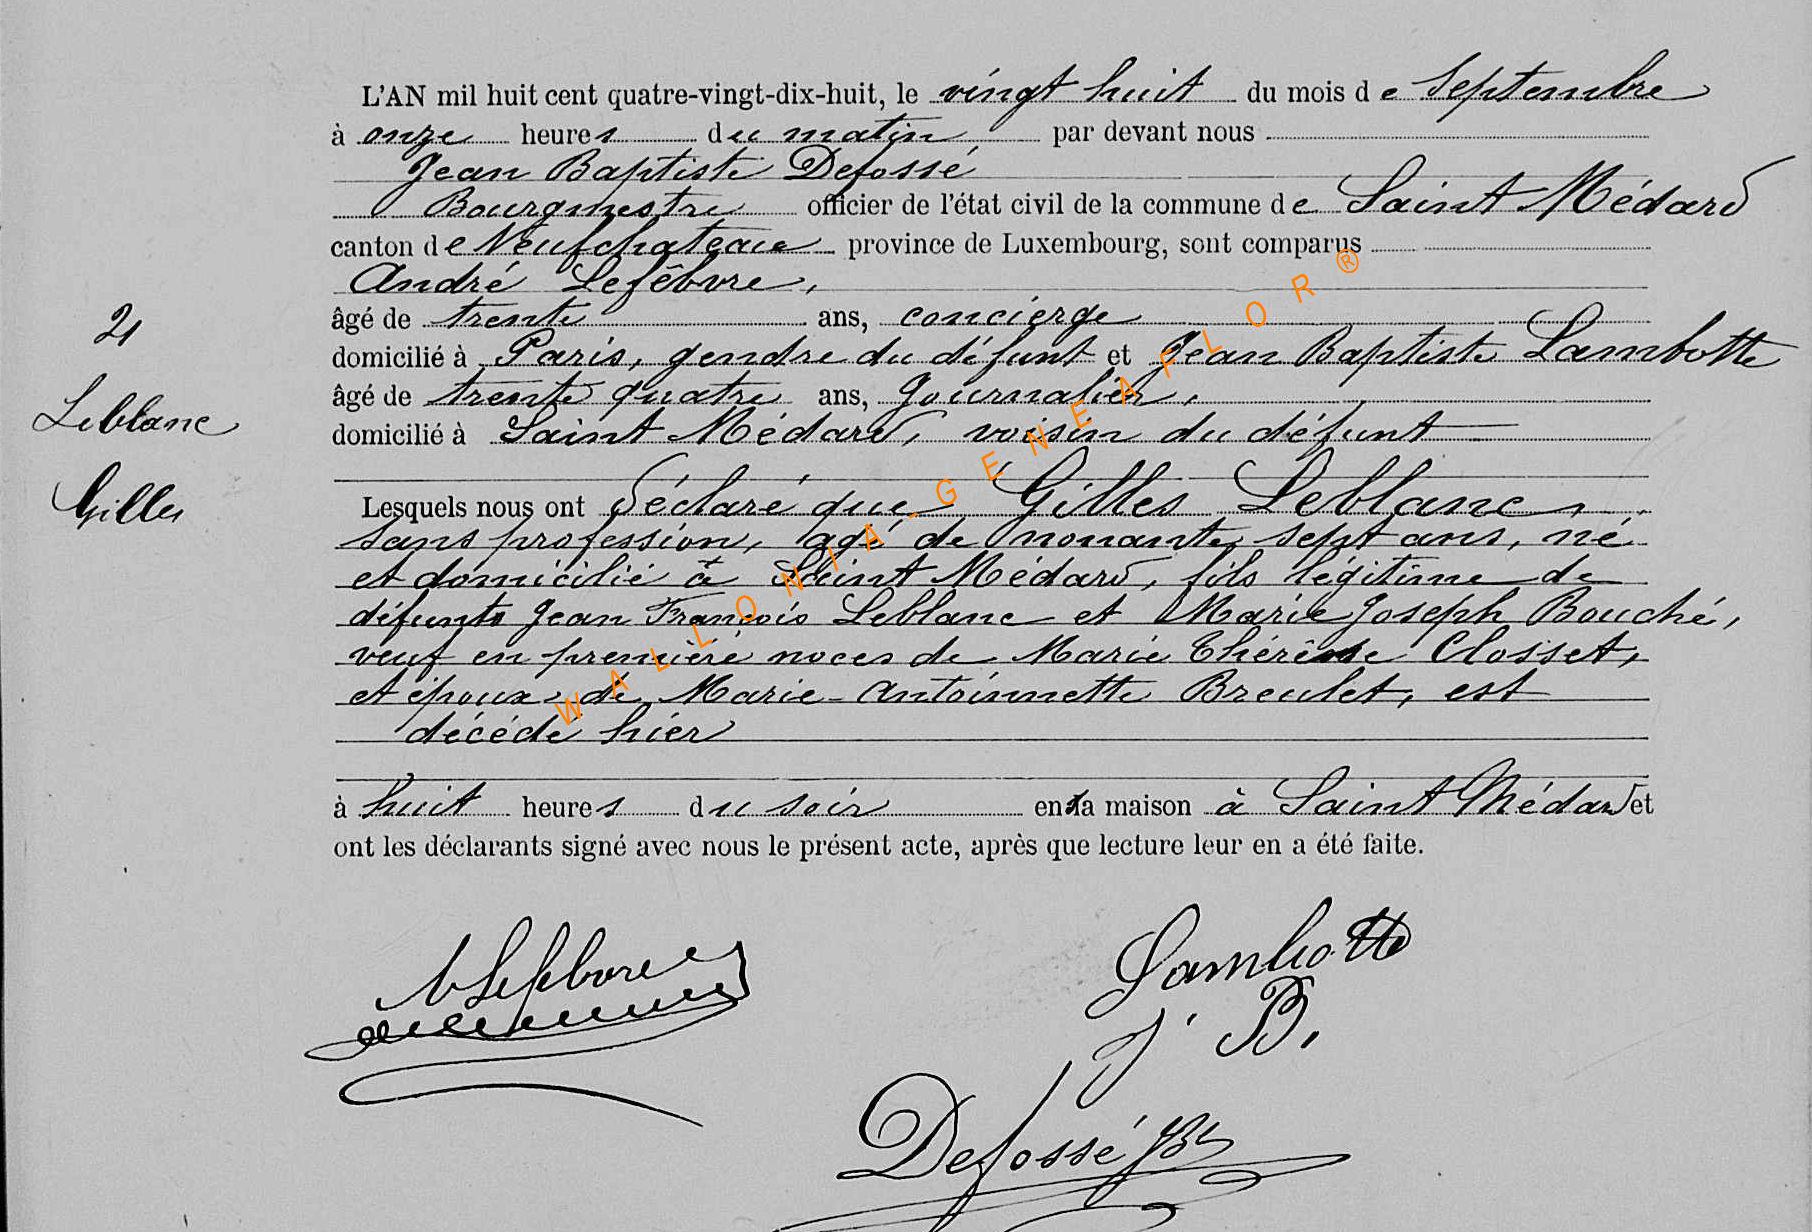 L'AN mil huit cent quatre-vingt-dix-huit, le vingt huit du mois de Septembre
à onze heures du matin par devant nous
Jean Baptiste Defossé
Bourgmestre officier de l'état civil de la commune de Saint Médard
canton de Neufchateau province de Luxembourg, sont comparus
André Lefêbvre,
âgé de trente ans, concierge
domicilié à Paris, gendre du défunt et Jean Baptiste Lambotte
âgé de trente quatre ans, Journalier,
domicilié à Saint Médard, voisin du défunt
21
Leblanc
Gilles
Lesquels nous ont déclaré que Gilles Leblanc,
sans profession, agé de nonante sept ans, né
et domicilié à Saint Médard, fils légitime de
défunts Jean François Leblanc et Marie Joseph Bouché,
veuf en première noces de Marie Thérèse Closset,
et époux de Marie-Antoinnette Breulet, est
décédé hier
à huit heures du soir en sa maison à Saint Médard et
ont les déclarants signé avec nous le présent acte, après que lecture leur en a été faite.
A Lefebvre
Lambotte
J. B.
Defossé JB
WALLONIA-GENEAFLOR®